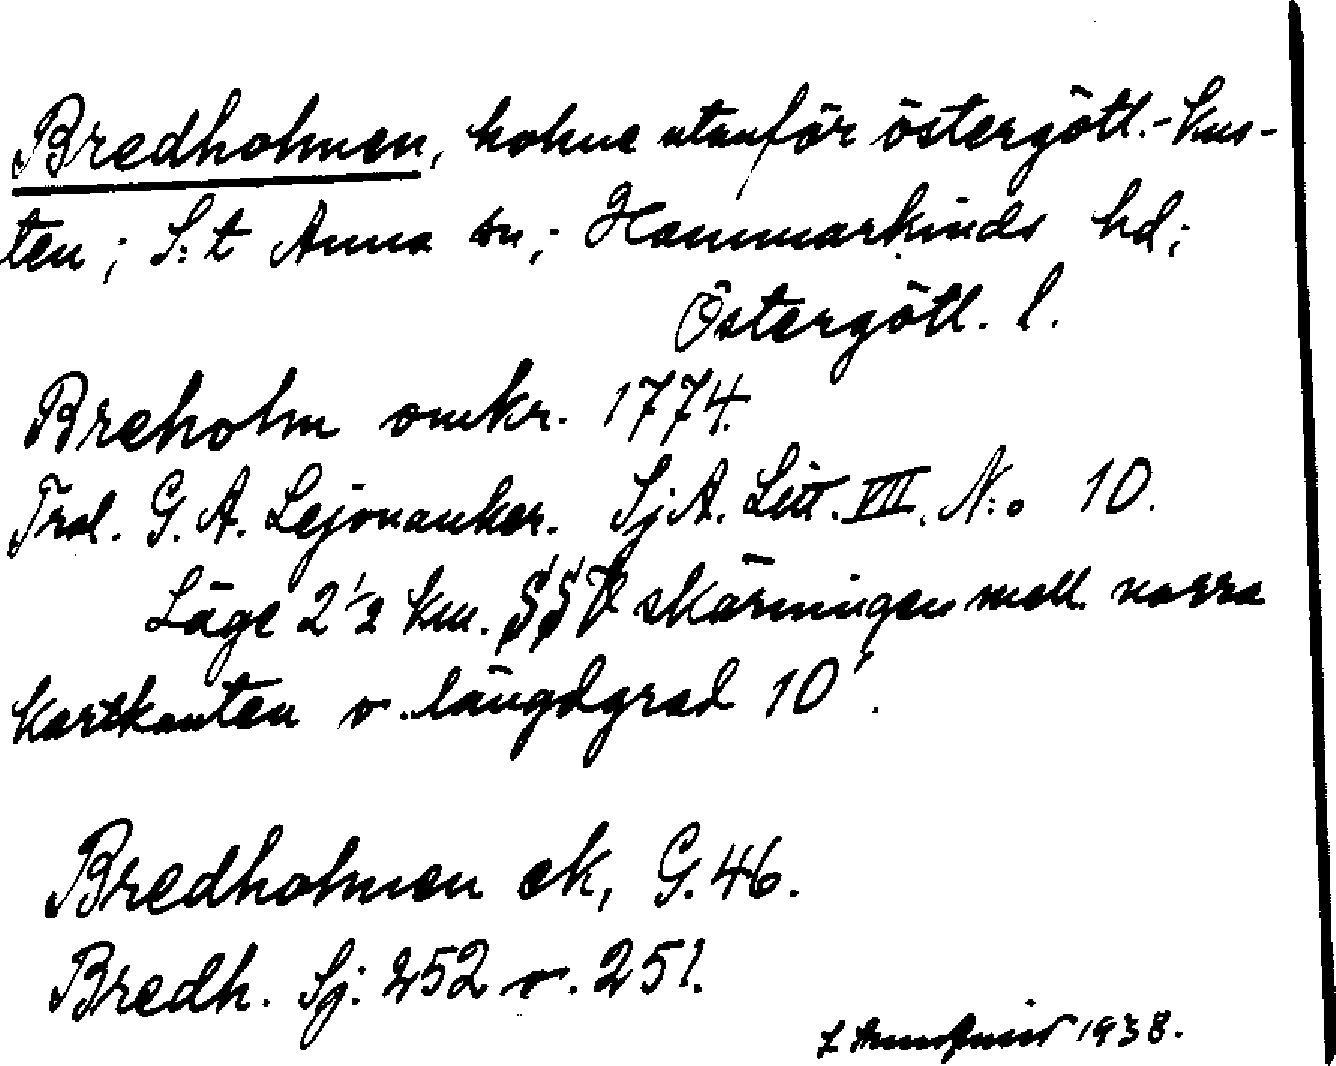 Bredholmen, holme utanför östergötl.-kus-
ten; S:t Anna sn; Hammarkinds hd;
Östergötl. l.
Breholm omkr. 1774.
Trol. G. A. Lejonanker. SjA. Litt. VII. N:o 10.
Läge 2 1/2 km. SSV skärningen mell. norra
kartkanten o. längdgrad 10'.
Bredholmen ek, G. 46.
Bredh. Sj: 252 o. 251.
1938.